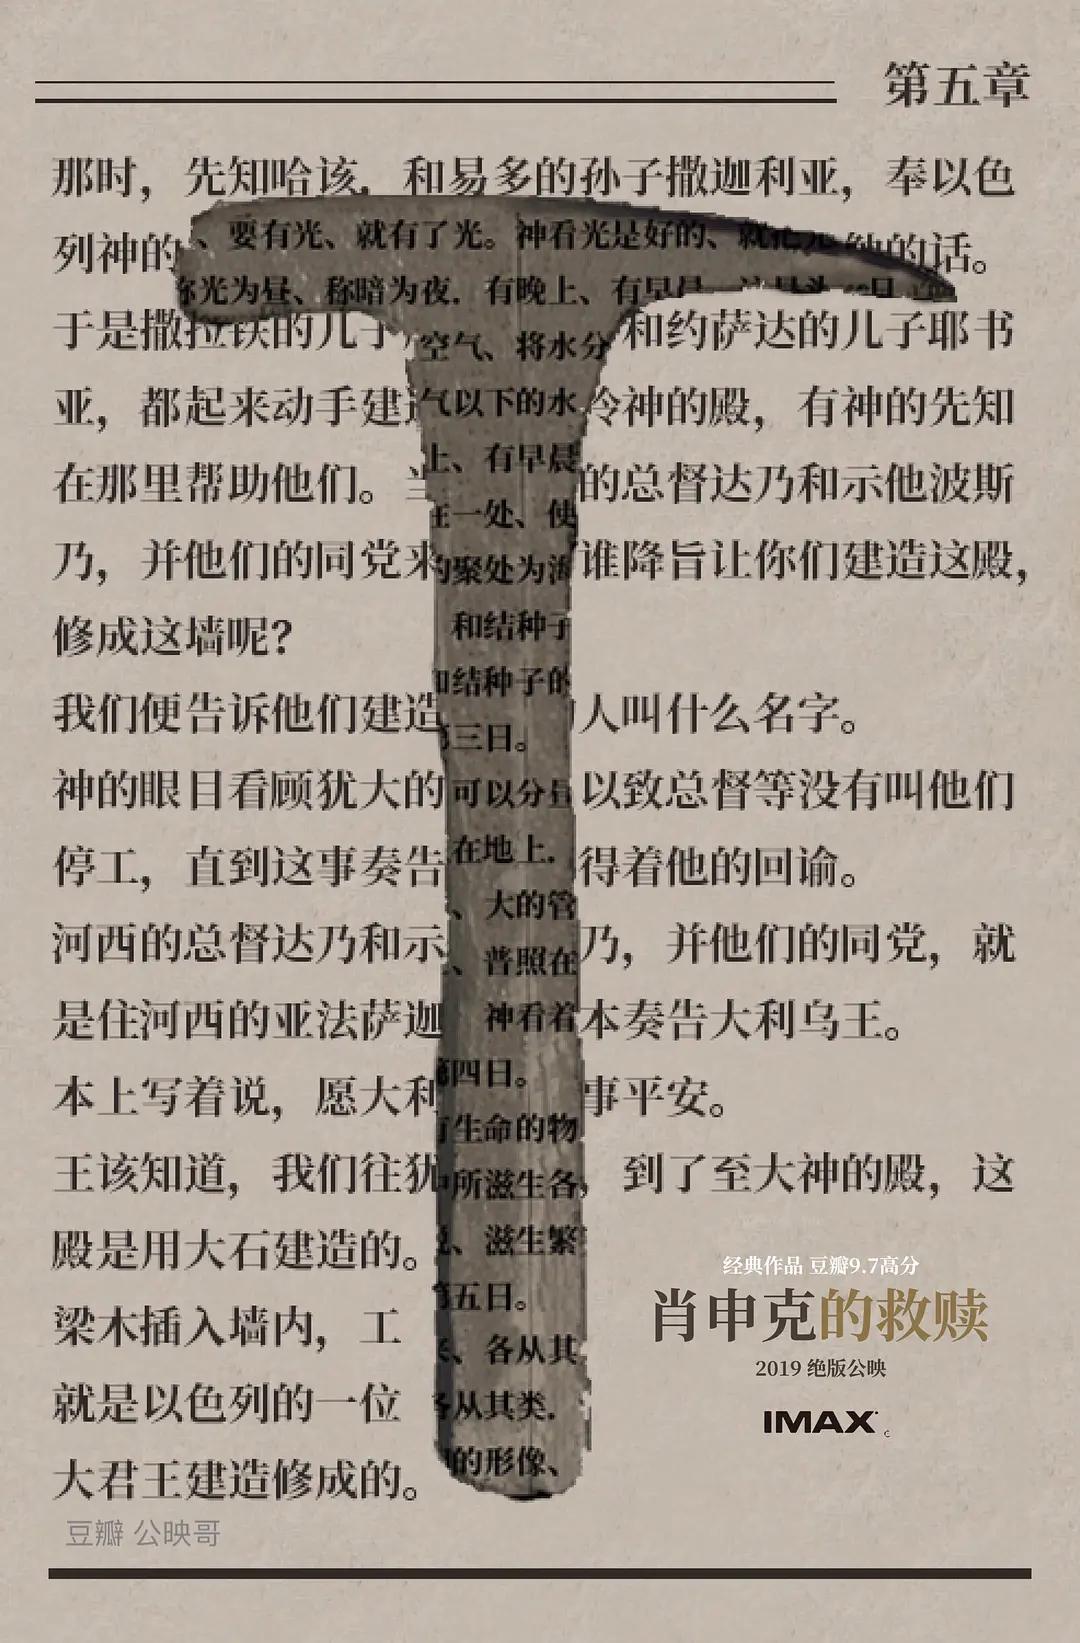 第五章
那时，先知哈该，和易多的孙子撒迦利亚，奉以色
列神的 的话。
于是撒拉铁的儿子 和约萨达的儿子耶书
亚，都起来动手建 冷神的殿，有神的先知
在那里帮助他们。 的总督达乃和示他波斯
乃，并他们的同党来 谁降旨让你们建造这殿，
修成这墙呢？
我们便告诉他们建造 人叫什么名字。
神的眼目看顾犹大的 以致总督等没有叫他们
停工，直到这事奏告 得着他的回谕。
河西的总督达乃和示 乃，并他们的同党，就
是住河西的亚法萨迦 本奏告大利乌王。
本上写着说，愿大利 事平安。
王该知道，我们往犹 ，到了至大神的殿，这
殿是用大石建造的。
梁木插入墙内，工
就是以色列的一位
大君王建造修成的。
、要有光、就有了光。神看光是好的、就
光为昼、称暗为夜．有晚上、有早晨
空气、将水分
气以下的水
上、有早晨
一处、使
聚处为海
和结种子
结种子的
三日。
可以分
在地上．
、大的管
、普照在
神看着
四日。
生命的物
所滋生各
、滋生繁
五日。
、各从其
从其类．
的形像、
经典作品 豆瓣9.7高分
肖申克的救赎
2019 绝版公映
IMAX
豆瓣 公映哥